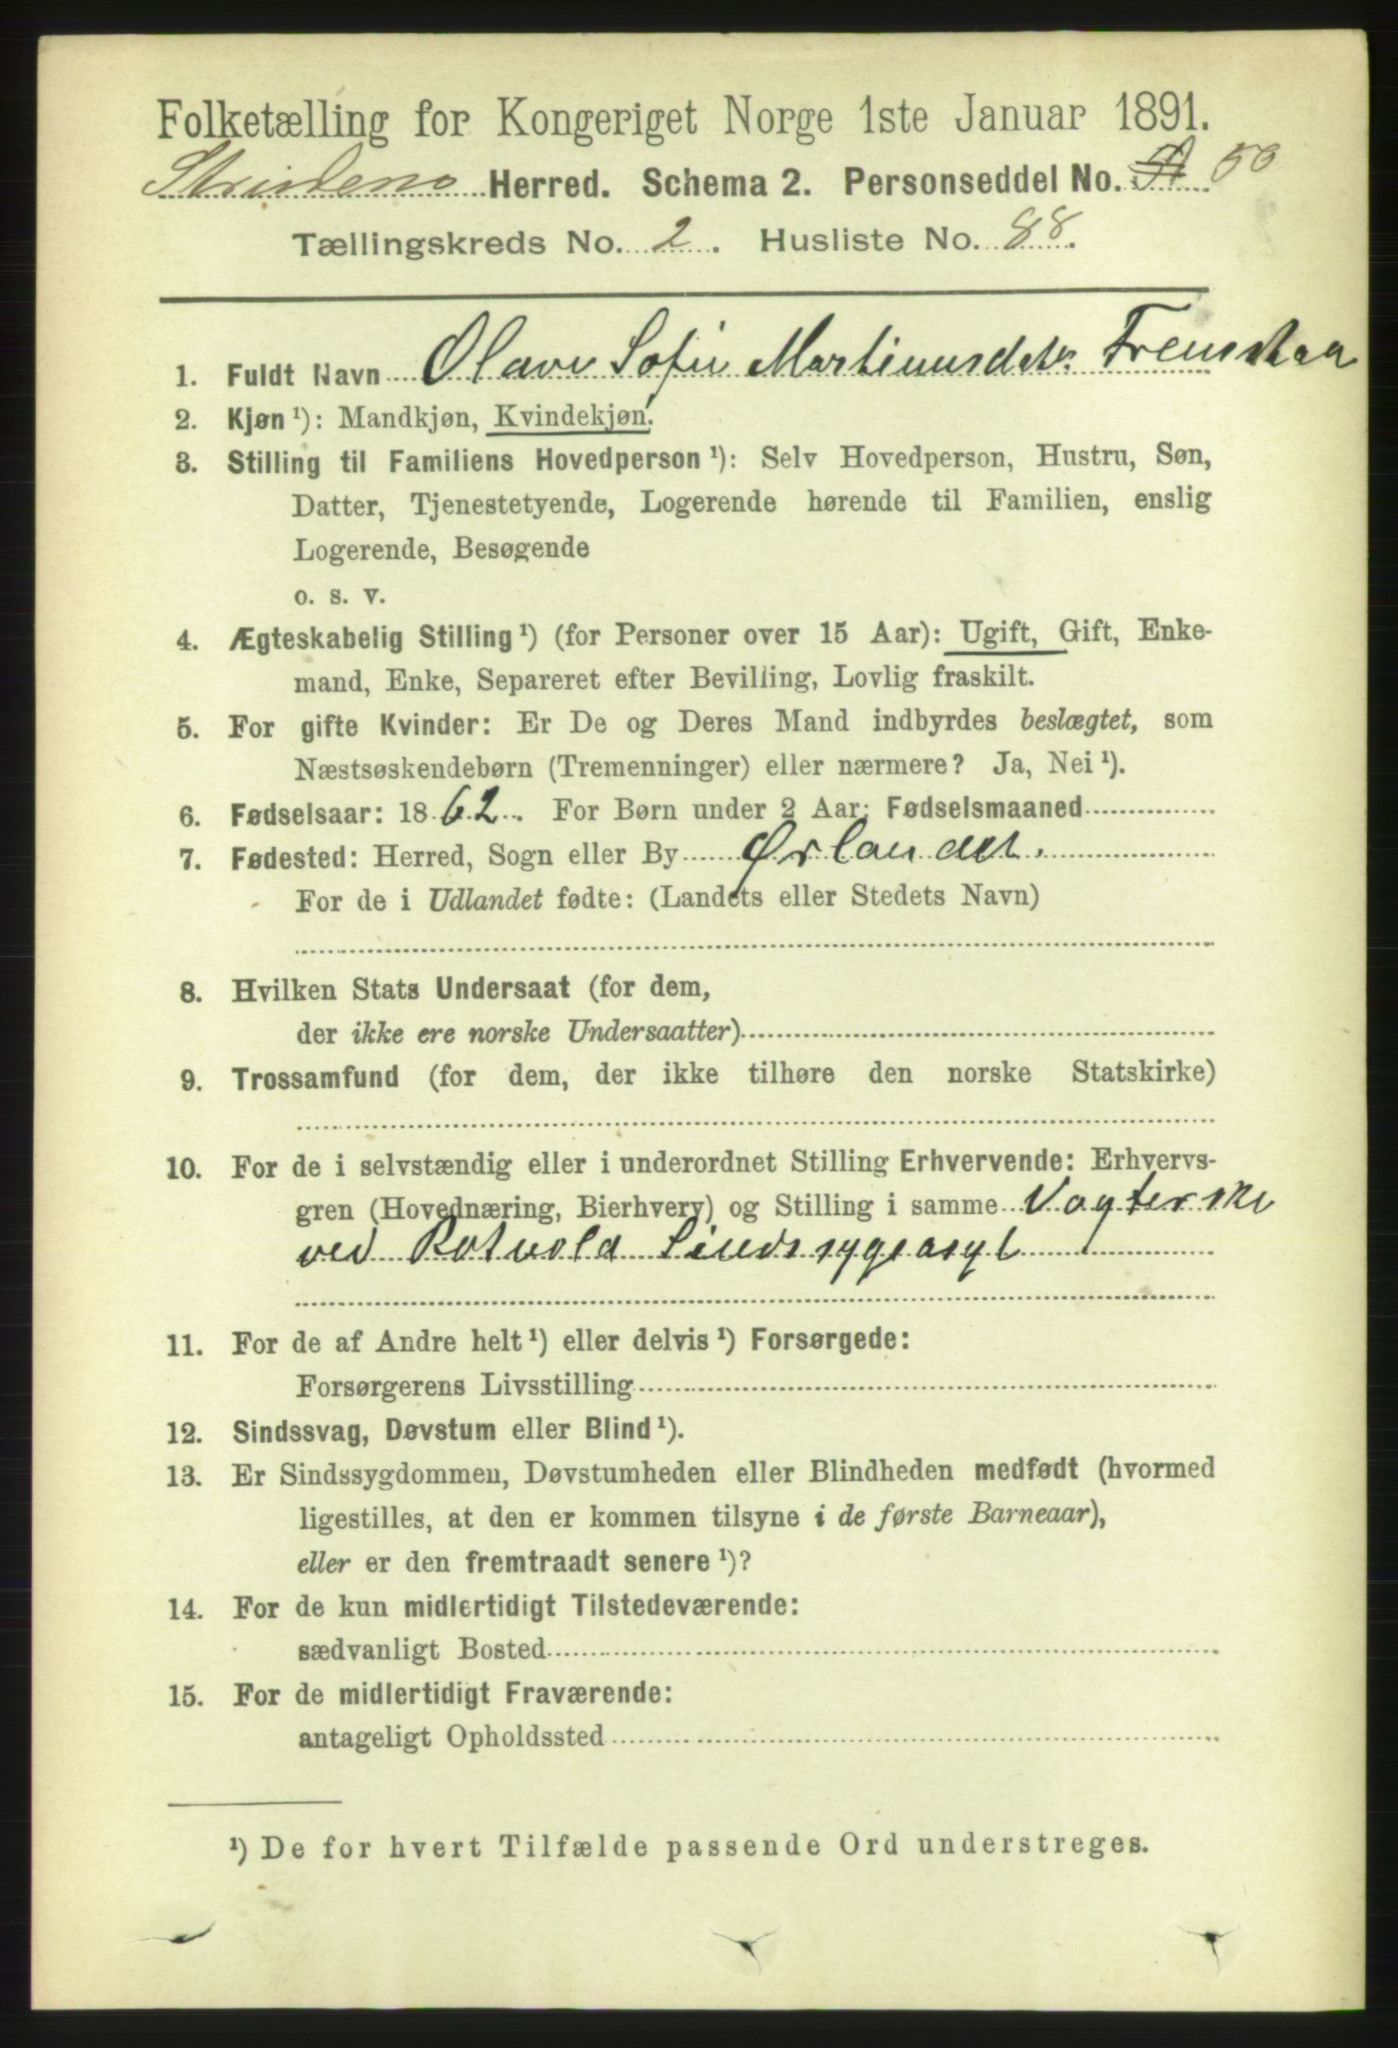 Folketælling for Kongeriget Norge 1ste Januar 1891.
Strindens Herred. Schema 2. Personseddel No. 50
Tællingskreds No. 2. Husliste No. 88.
1. Fuldt Navn Olave Sofie Martinusdatr. Fremstaa
2. Kjøn ¹): Mandkjøn, Kvindekjøn.
3. Stilling til Familiens Hovedperson ¹): Selv Hovedperson, Hustru, Søn,
Datter, Tjenestetyende, Logerende hørende til Familien, enslig
Logerende, Besøgende
o. s. v.
4. Ægteskabelig Stilling ¹) (for Personer over 15 Aar): Ugift, Gift, Enke-
mand, Enke, Separeret efter Bevilling, Lovlig fraskilt.
5. For gifte Kvinder: Er De og Deres Mand indbyrdes beslægtet, som
Næstsøskendebørn (Tremenninger) eller nærmere? Ja, Nei ¹).
6. Fødselsaar: 1862. For Børn under 2 Aar: Fødselsmaaned
7. Fødested: Herred, Sogn eller By Ørlandet.
For de i Udlandet fødte: (Landets eller Stedets Navn)
8. Hvilken Stats Undersaat (for dem,
der ikke ere norske Undersaatter)
9. Trossamfund (for dem, der ikke tilhøre den norske Statskirke)
10. For de i selvstændig eller i underordnet Stilling Erhvervende: Erhvervs-
gren (Hovednæring, Bierhverv) og Stilling i samme Vagterske
ved Rotvold Sindssygeasyl
11. For de af Andre helt ¹) eller delvis ¹) Forsørgede:
Forsørgerens Livsstilling
12. Sindssvag, Døvstum eller Blind ¹).
13. Er Sindssygdommen, Døvstumheden eller Blindheden medfødt (hvormed
ligestilles, at den er kommen tilsyne i de første Barneaar),
eller er den fremtraadt senere ¹)?
14. For de kun midlertidigt Tilstedeværende:
sædvanligt Bosted
15. For de midlertidigt Fraværende:
antageligt Opholdssted
¹) De for hvert Tilfælde passende Ord understreges.